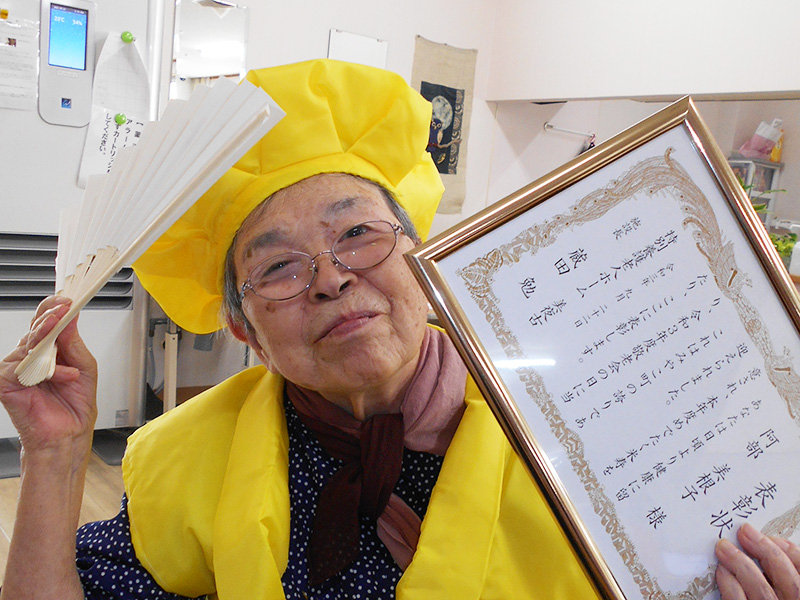 表彰状
阿部 美根子 様
あなたは日頃より健康に留
意され、本年度めでたく米寿を
迎えられました。
これはみやこ町の誇りであ
り、令和3年度敬老会の日に当
たり、ここに表彰します。
令和三年 九月 二十二日
特別養護老人ホーム
施設長
22℃ 54%
アラー
すカートリッジ
してください。